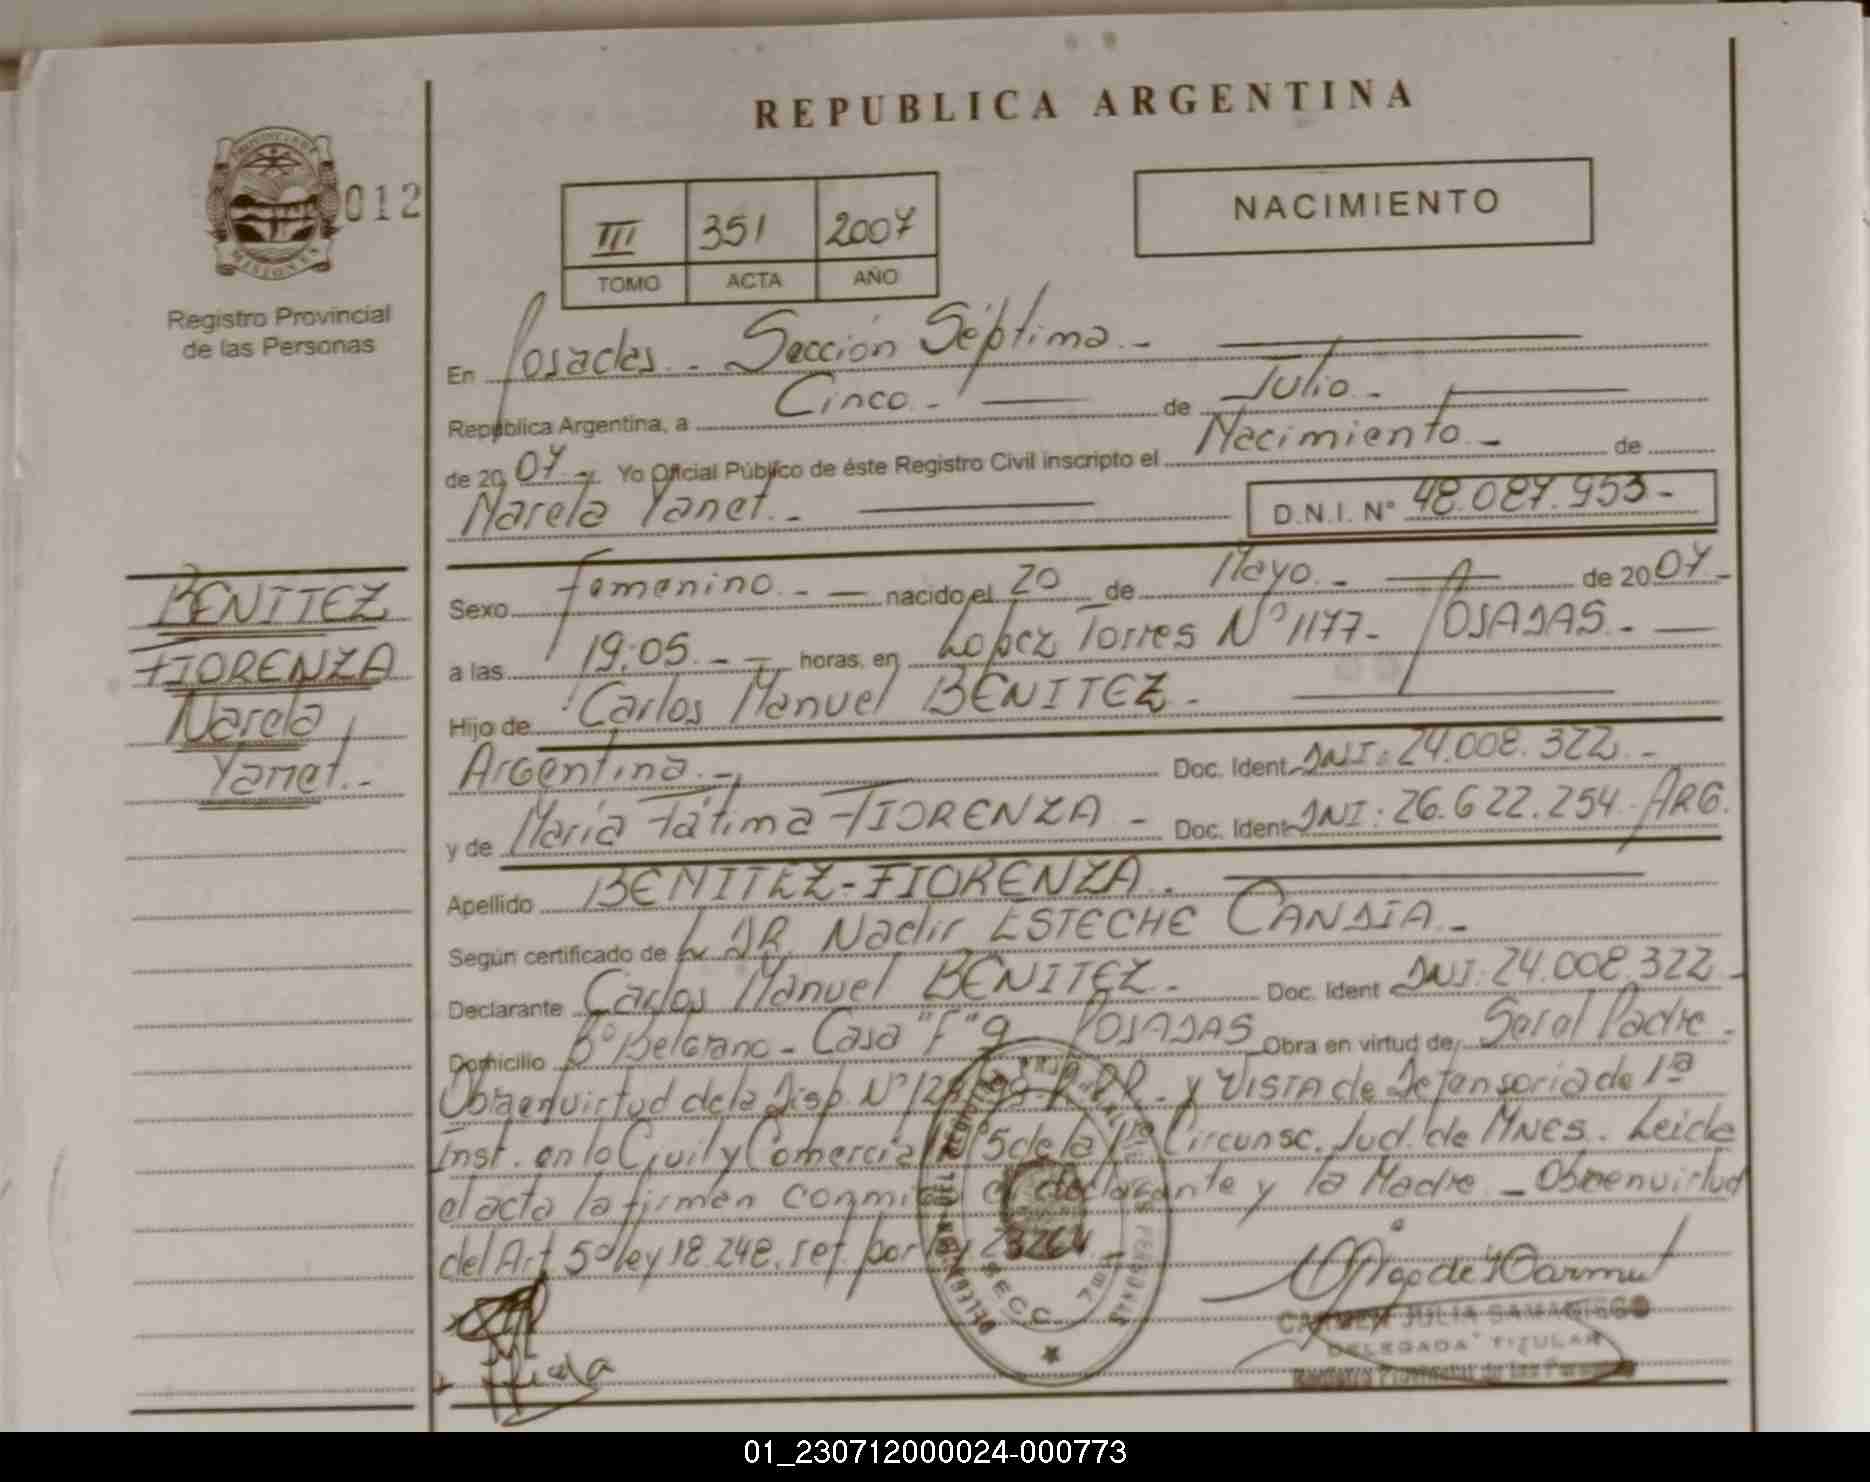 REPUBLICA ARGENTINA
PROVINCIA DE
MISIONES
012
Registro Provincial
de las Personas
III 351 2007
TOMO ACTA AÑO
NACIMIENTO
En Posadas - Sección Séptima. -
Republica Argentina, a Cinco. - de Julio. -
de 20 07 - Yo Oficial Público de éste Registro Civil inscripto el Nacimiento - de
Narela Yanet. - D.N.I. N° 48.087.953 -
BENITEZ
FIORENZA
Narela
Yanet. -
Sexo femenino. - - nacido el 20 de Mayo. - de 20 07 -
a las 19:05. - - horas, en Lopez Torres N° 1177 - POSADAS. -
Hijo de Carlos Manuel BENITEZ -
Argentina. - Doc. Ident DNI: 24.008.322. -
y de María Fátima FIORENZA - Doc. Ident DNI: 26.622.254 - ARG.
Apellido BENITEZ - FIORENZA .
Según certificado de DR. Nadir ESTECHE CANDIA. -
Declarante Carlos Manuel BENITEZ. - Doc. Ident DNI: 24.008.322 -
Domicilio B° Belgrano - Casa "F" 9 POSADAS Obra en virtud de Ser el Padre -
Obra en virtud de la Disp. N° - y VISTA de Defensoria de 1ª
Inst. en lo Civil y Comercial N° 5 de la 1ra Circunsc. Jud. de Mnes. Leida
el acta la firman conmigo el declarante y la Madre - Obra en virtud
del Art. 5° ley 18.248. ref. por ley 23264. -
SECC. 7ma.
CARMEN JULIA SAMANIEGO
DELEGADA TITULAR
Registro Provincial de las Personas
01_230712000024-000773